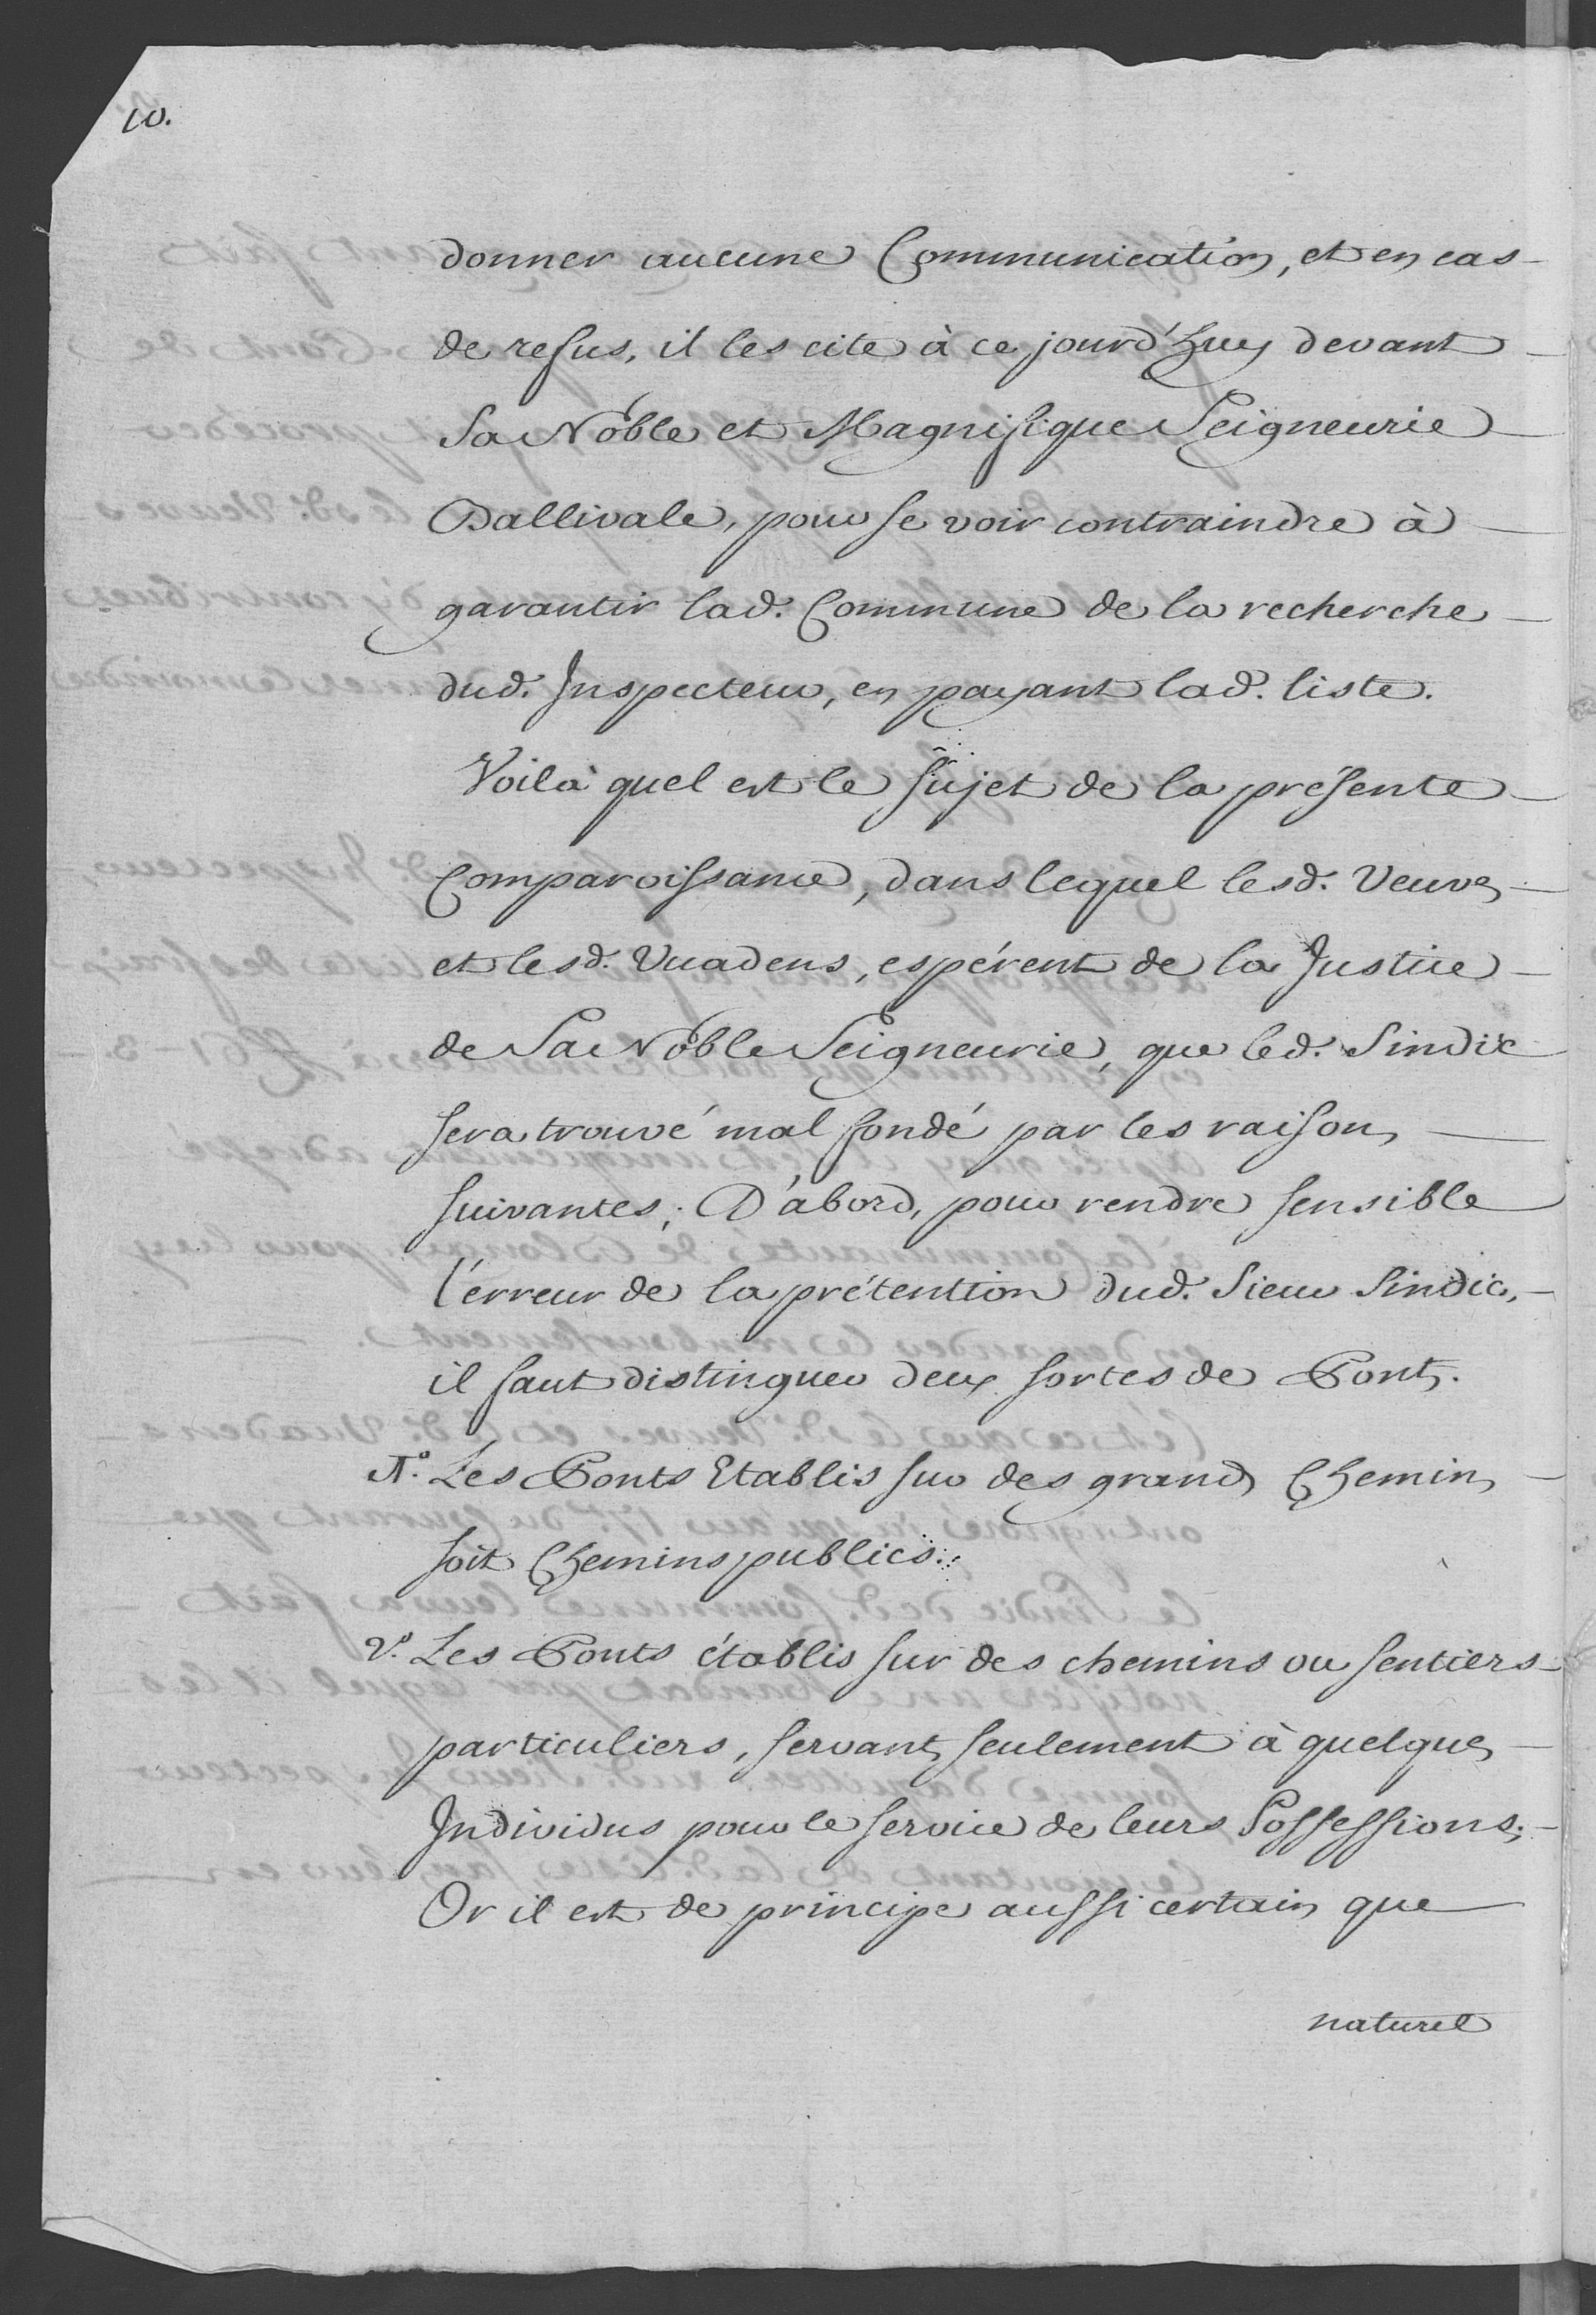 10.
donner aucune Communication, et en cas
de refus, il les cite à ce jourd'huy devant
Sa Noble et Magnifique Seigneurie
Ballivale, pour se voir contraindre à
garantir lad. Commune de la recherche
dud. Inspecteur, en payant lad. liste.
Voilà quel est le sujet de la présente
Comparoissance, dans lequel lesd. Veuves
et lesd. Vuadens, espérent de la Justice
de Sa Noble Seigneurie, que led. Sindic
sera trouvé mal fondé par les raisons
suivantes; D'abord, pour rendre sensible
l'erreur de la prétention dud. Sieur Sindic,
il faut distinguer deux sortes de Ponts.
1°. Les Ponts Etablis sur des grands Chemins
soit Chemins publics.
2°. Les Ponts établis sur des chemins ou sentiers
particuliers, servants seulement à quelques
Individus pour le service de leurs Possessions;
Or il est de principe aussi certain que
naturel